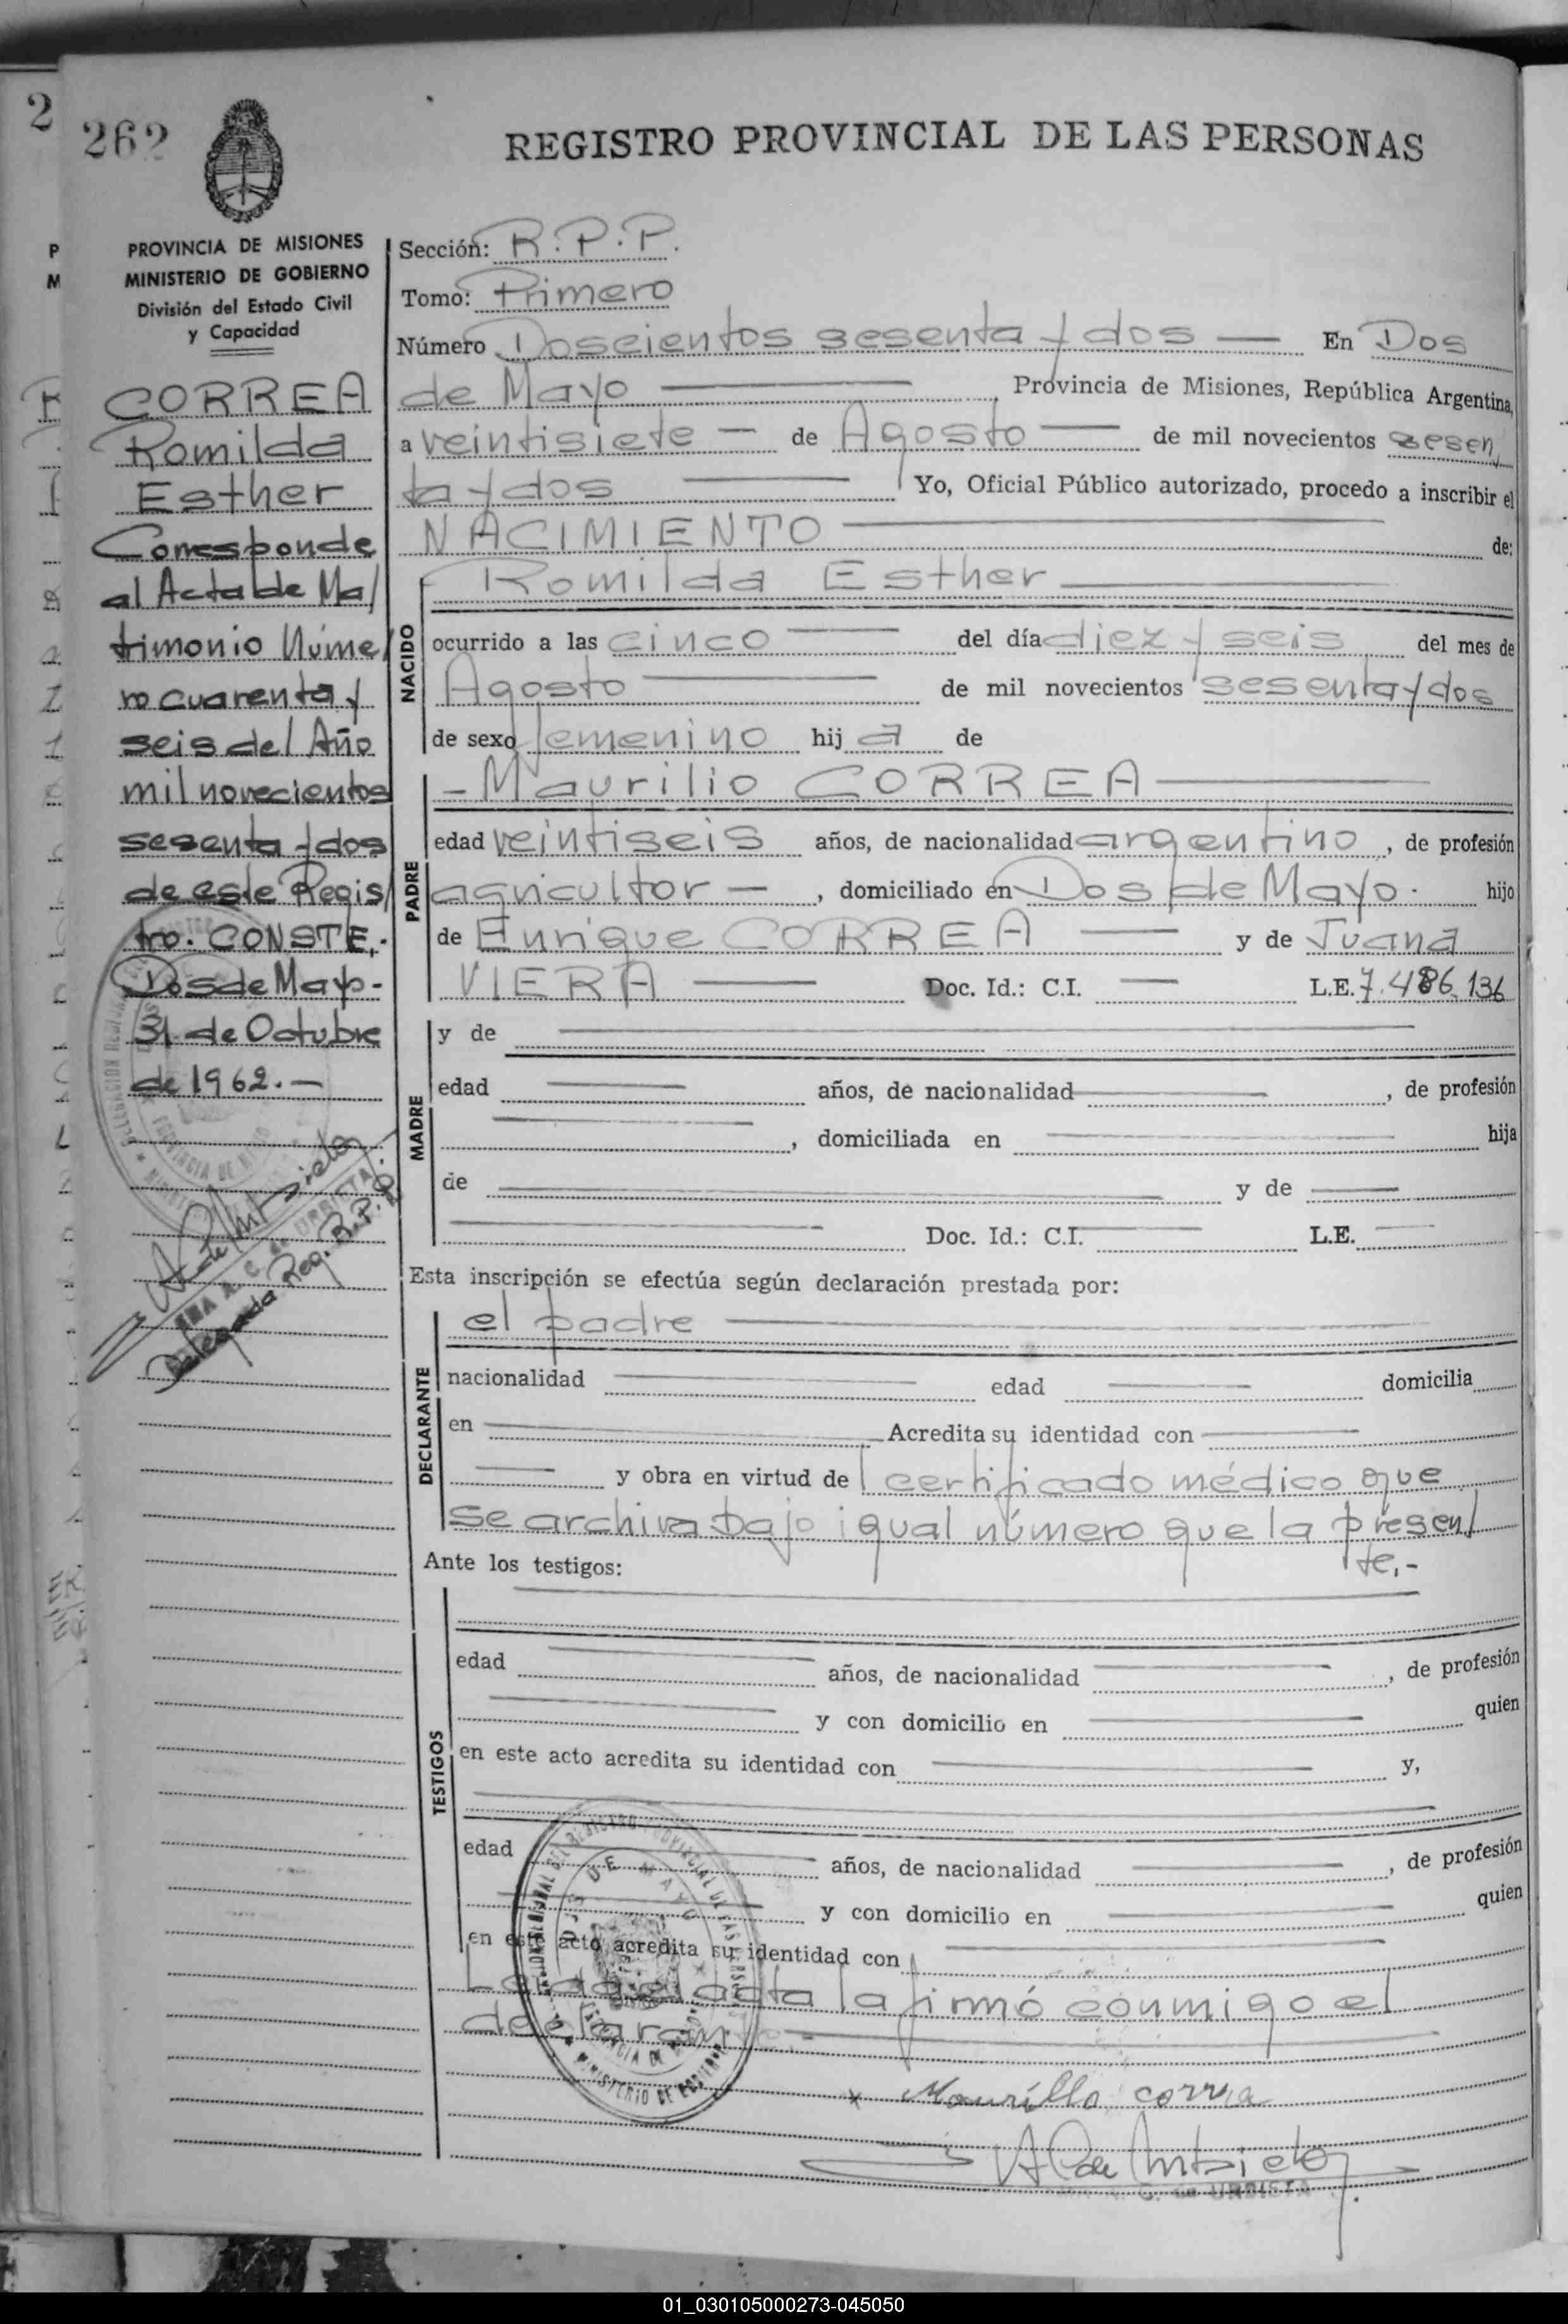 2
262
REGISTRO PROVINCIAL DE LAS PERSONAS
PROVINCIA DE MISIONES
MINISTERIO DE GOBIERNO
División del Estado Civil
y Capacidad
CORREA
Romilda
Esther
Corresponde
al Acta de Ma/
trimonio Núme/
ro cuarenta y
seis del Año
mil novecientos
sesenta y dos
de este Regis/
tro. CONSTE.-
Dos de Mayo-
31 de Octubre
de 1962.-
Delegada Reg. R.P.P.
Sección: R.P.P.
Tomo: Primero
Número Doscientos sesenta y dos — En Dos
de Mayo — Provincia de Misiones, República Argentina,
a veintisiete — de Agosto — de mil novecientos sesen/
ta y dos — Yo, Oficial Público autorizado, procedo a inscribir el
NACIMIENTO — de:
NACIDO
Romilda Esther —
ocurrido a las cinco — del día diez y seis del mes de
Agosto — de mil novecientos sesenta y dos
de sexo femenino hija de
PADRE
- Maurilio CORREA —
edad veintiseis años, de nacionalidad argentino, de profesión
agricultor —, domiciliado en Dos de Mayo. hijo
de Enrique CORREA — y de Juana
VIERA — Doc. Id.: C.I. — L.E. 7.486.136
MADRE
y de —
edad — años, de nacionalidad —, de profesión
—, domiciliada en — hija
de — y de —
— Doc. Id.: C.I. — L.E. —
Esta inscripción se efectúa según declaración prestada por:
DECLARANTE
el padre —
nacionalidad — edad — domicilia
en — Acredita su identidad con —
— y obra en virtud de l certificado médico que
se archiva bajo igual número que la presen/
te.-
Ante los testigos:
TESTIGOS
edad — años, de nacionalidad —, de profesión
— y con domicilio en — quien
en este acto acredita su identidad con — y,
edad — años, de nacionalidad —, de profesión
— y con domicilio en — quien
en este acto acredita su identidad con —
Leida el acta la firmó conmigo el
declarante.-
MINISTERIO DE GOBIERNO
x Maurillo correa
01_030105000273-045050